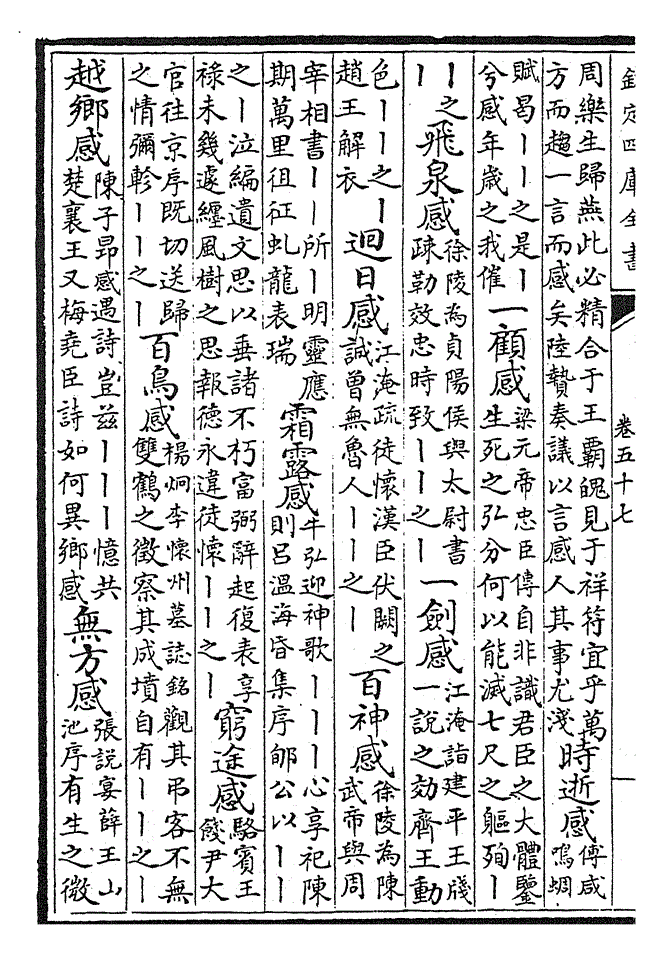 欽定四庫全書
卷五十七
周樂生歸燕此必精合于王覇魄見于祥符宜乎萬
方而趨一言而感矣陸贄奏議以言感人其事尤淺
時逝感
傅咸
鳴蜩
賦曷丨丨之是丨
兮感年歲之我催
一顧感
梁元帝忠臣傳自非識君臣之大體鑒
生死之弘分何以能滅七尺之軀殉丨
丨之
丨
飛泉感
徐陵為貞陽侯與太尉書
疎勒效忠時致丨丨之丨
一劍感
江淹詣建平王牋
一説之効齊王動
色丨丨之丨
趙王解衣
迴日感
江淹疏徒懷漢臣伏闕之
誠曾無魯人丨丨之丨
百神感
徐陵為陳
武帝與周
宰相書丨丨所丨明靈應
期萬里徂征虬龍表瑞
霜露感
牛弘迎神歌丨丨丨心享祀陳
則呂溫海昏集序郇公以丨丨
之丨泣編遺文思以垂諸不朽富弼辭起復表享
祿未幾遽纏風樹之思報德永違徒懷丨丨之丨
窮途感
駱賓王
餞尹大
官往京序既切送歸
之情彌軫丨丨之丨
百鳥感
楊炯李懷州墓誌銘觀其弔客不無
雙鶴之徵察其成墳自有丨丨之丨
越鄉感
陳子昂感遇詩豈兹丨丨丨憶共
楚襄王又梅堯臣詩如何異鄉感
無方感
張説宴薛王山
池序有生之微